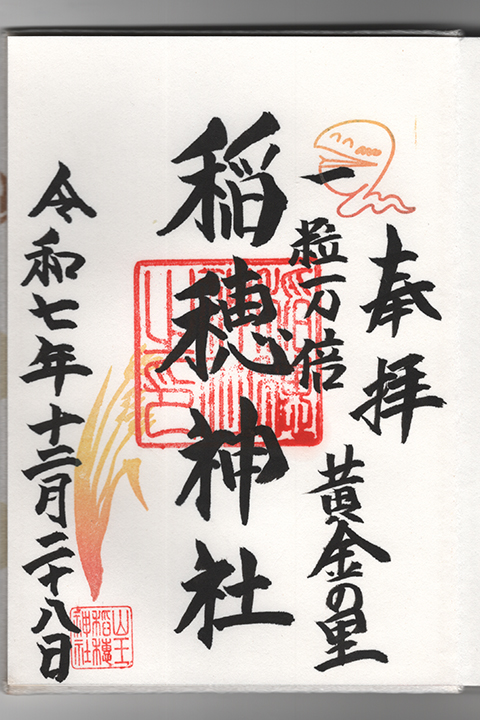 奉拝
黄金の里
一粒万倍
稲穂神社
令和七年十二月二十八日
山王
稲穂
神社